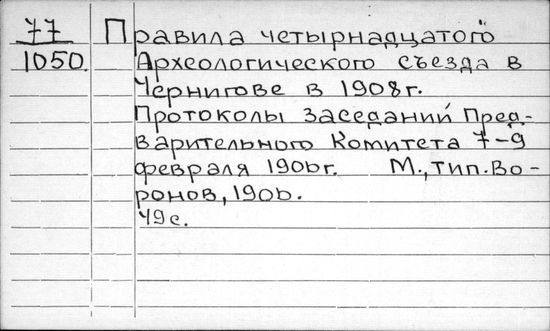 77 Правила четырнадцатого
1050. Археологического съезда в
Чернигове в 1908г.
Протоколы заседаний Пред-
варительного Комитета 7-9
февраля 1906г. М., тип. Во-
ронов, 1906.
49с.